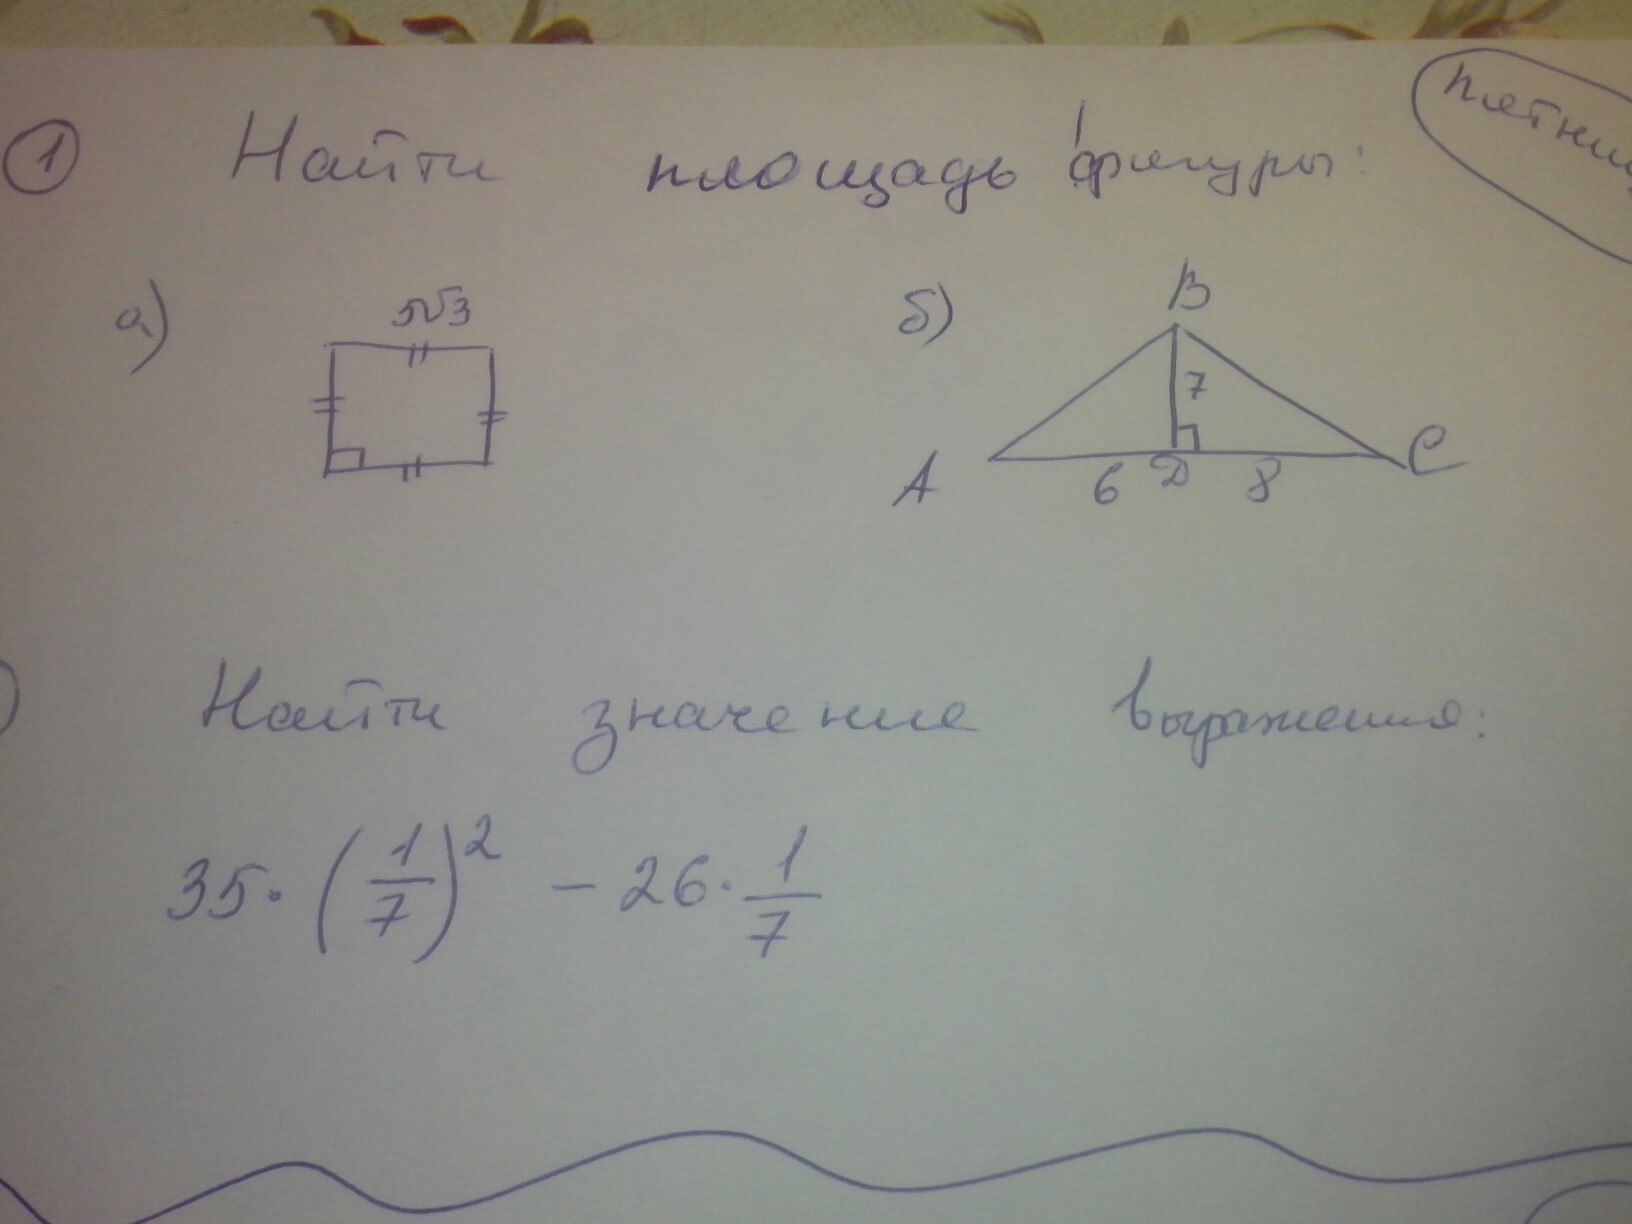 ① Найти площадь фигуры:
а) 5√3
б) B
7
A 6 D 8 C
Найти значение выражения:
35·(1/7)² - 26·1/7